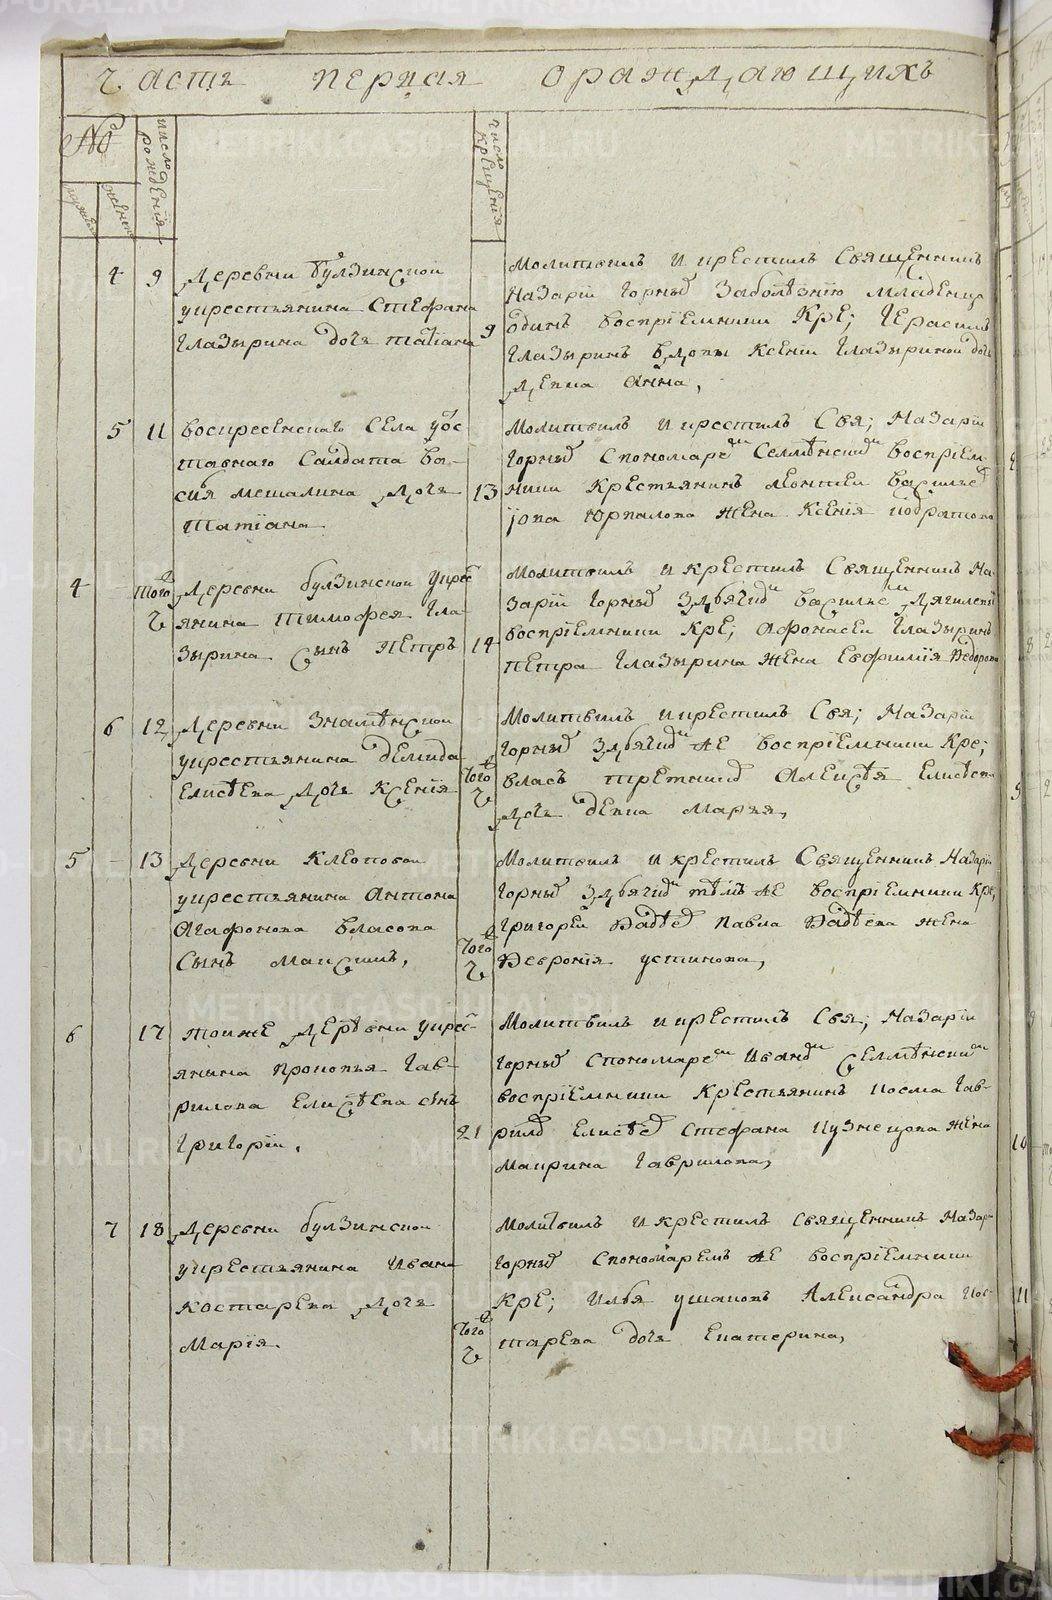 Часть первая ораждающихъ
№
число рождения
число крещения
4 9 Деревни булзинской
укрестьянина Стефана
Глазырина дочь татiана
9
Молитвилъ и крестилъ Священникъ
Назарiй Горныхъ Заболѣзнiю младенца
одинъ воспрiемники Кре; Герасимъ
Глазыринъ вдовы Ксенiи Глазыриной дочь
девка Анна,
5 11 воскресенскаго Села уот
ставнаго Салдата ва-
силья мешалина дочь
татiана
13
Молитвилъ и крестилъ Свя; Назарiй
Горныхъ Спономаремъ Селменскимъ воспрiем-
ники Крестьянинъ леонтей Василье
Iова Юркалова жена Ксенiя кодратова
4 того ч Деревни булзинской укрес
янина тимофея Гла
зырина сынъ петръ
14
Молитвилъ и крестилъ Священникъ На
зарiй Горныхъ Здьячкомъ василье Дягилевы
воспрiемники Кре; Афонасей Глазыринъ
петра Глазырина жена Евфимiя Федорова
6 12 Деревни Знаменской
укрестьянина демида
Елисѣева дочь Ксенiя
того ч
Молитвилъ и крестилъ Свя; Назарiй
Горныхъ Здьячкомъ же воспрiемники Кре;
власъ Алексѣя Елисѣева
дочь девка Марья,
5 13 Деревни Клеоповой
укрестьянина Антона
Агафонова власова
Сынъ максимъ,
того ч
Молитвилъ и крестилъ Священникъ Назарiй
Горныхъ Здьячкомъ тѣмъ же воспрiемники Кре,
Григорей Фадѣе Павла Фадѣева жена
Февронiя устинова,
6 17 тойже деревни укрес-
янина прокопья Гав-
рилова Елисѣева снъ
Григорiй.
21
Молитвилъ и крестилъ Свя; Назарiй
Горныхъ Спономаремъ Иваномъ Селменскимъ
воспрiемники Крестьянинъ косма Гав-
рило Елисѣе Стефана Кузнецова жена
Макрина Гаврилова,
7 18 Деревни булзинской
укрестьянина Ивана
костарева дочь
Марiя.
того ч
Молитвилъ и крестилъ Священникъ Назар
Горныхъ Спономаремъ же воспрiемники
Кре; Илья ушаковъ Александра Кос-
тарева дочь Екатерина,
METRIKI.GASO-URAL.RU